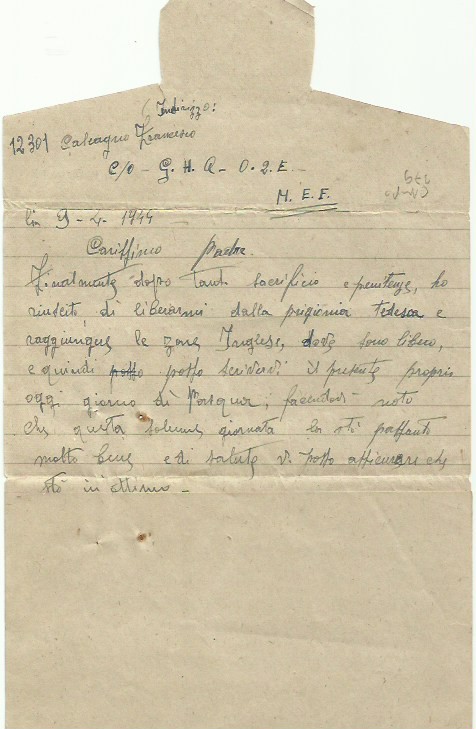 (Indirizzo:
12301 Calcagno Francesco
C/o - G. H. Q - O. 2 E.
M. E. F.
li 9-4-1944
Carissimo Padre
Finalmente dopo tanto sacrificio e penitenze, ho
riuscito di liberarmi dalla prigionia tedesca e
raggiungere le zone Inglese, dove sono libero,
e quindi posso posso scrivervi il presente proprio
oggi giorno di Pasqua, facendovi noto
che questa solenne giornata la stò passanto
molto bene e di salute vi posso assicurare che
stò in ottimo -